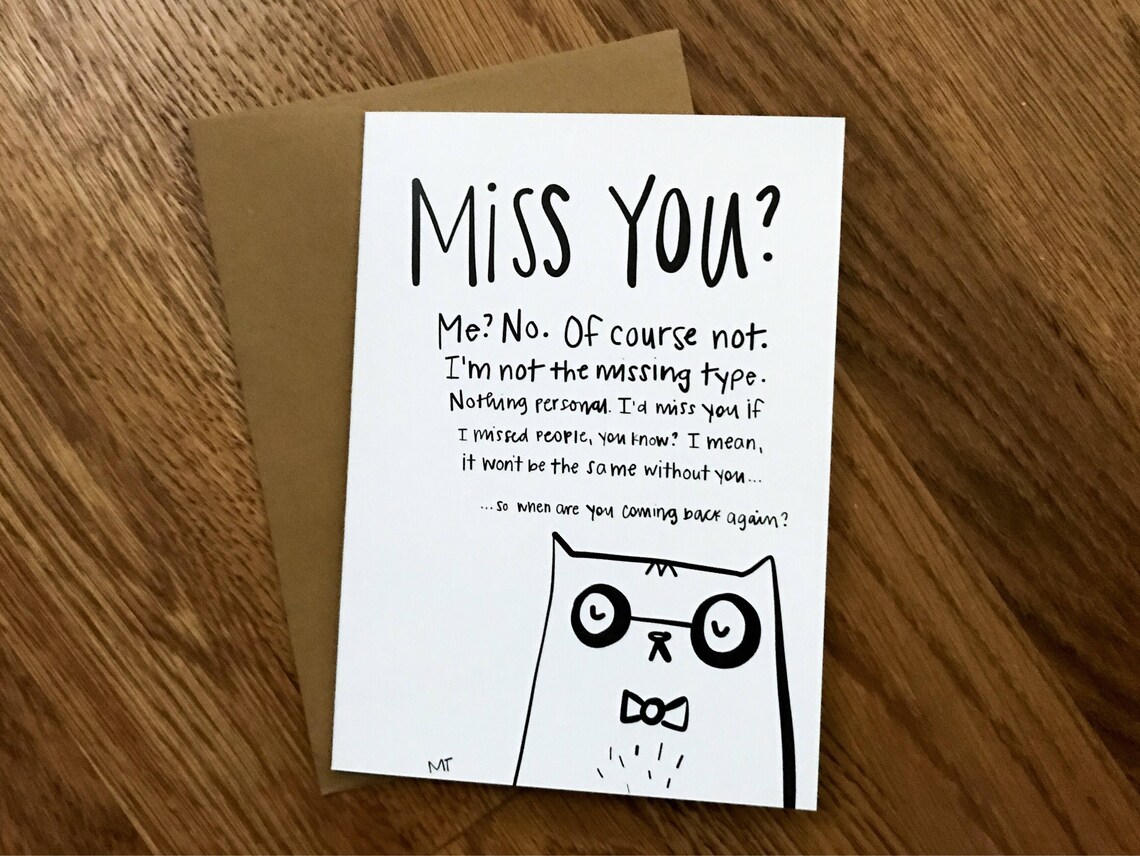 Miss You?
Me? No. Of course not.
I'm not the missing type.
Nothing personal. I'd miss you if
I missed people, you know? I mean,
it won't be the same without you...
...so when are you coming back again?
MT